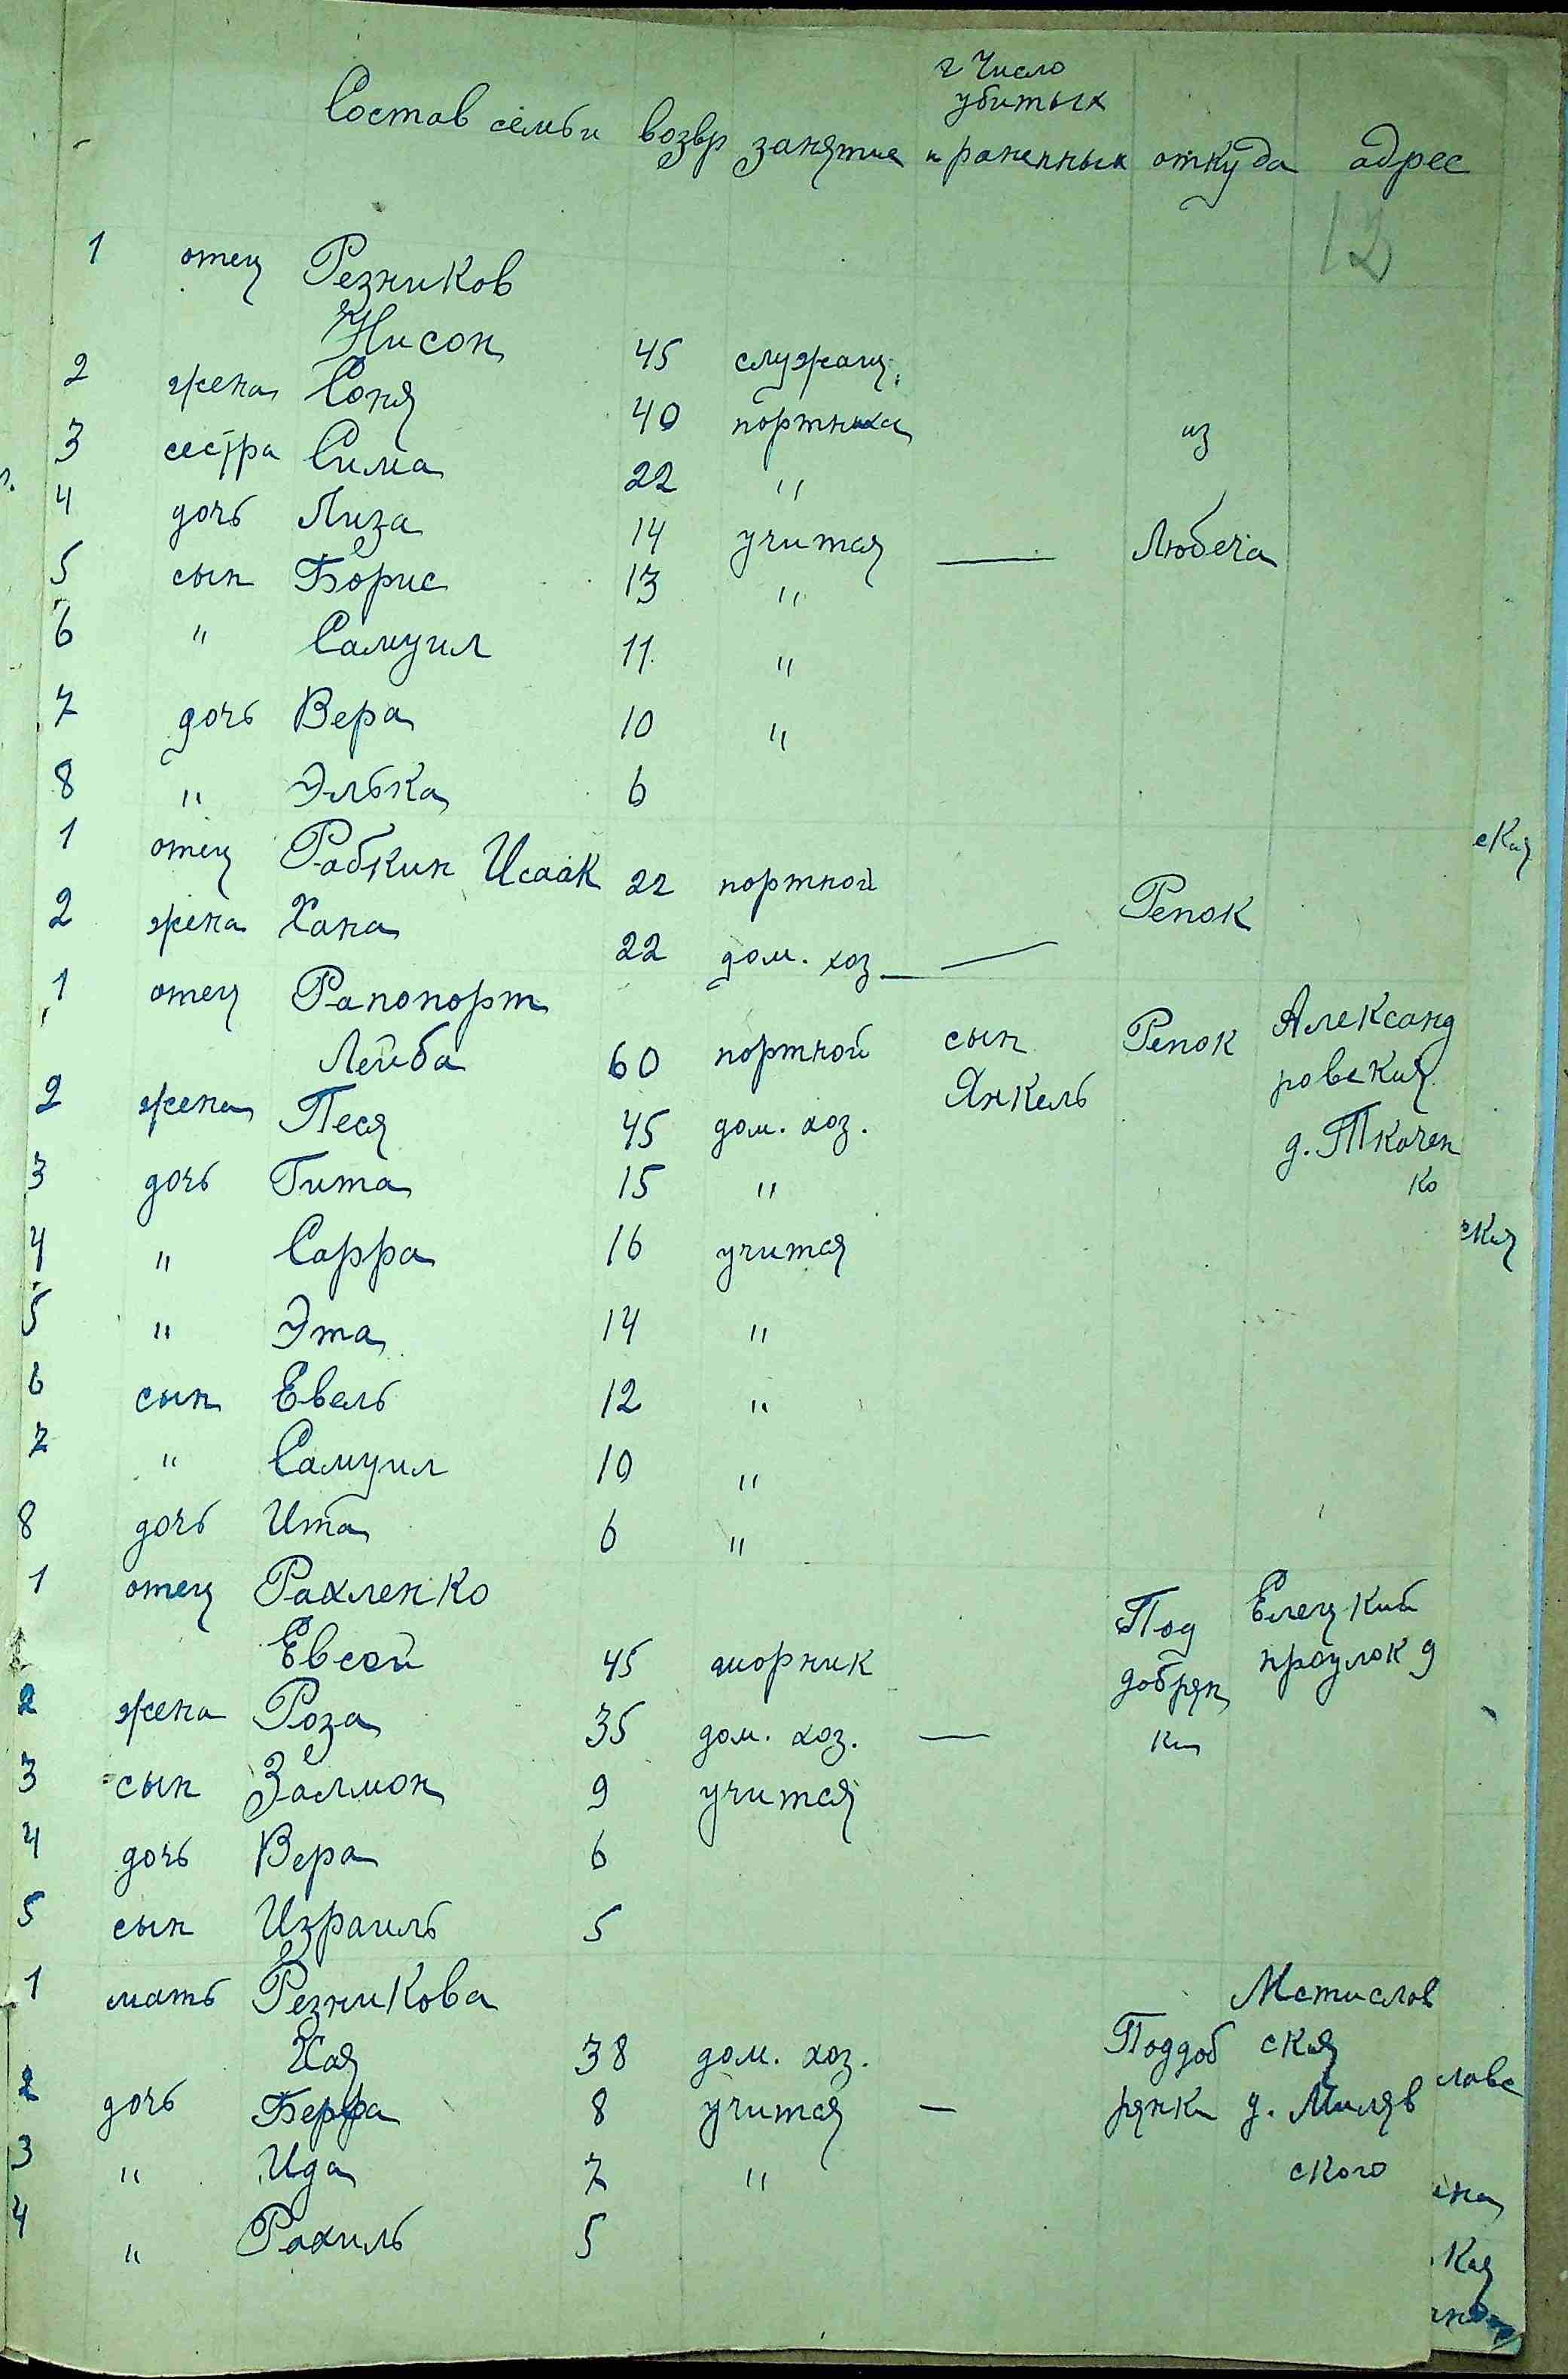 г Число
убитых
Состав семьи возвр занятие и раненных откуда адрес
12
1 отец Резников
Нисон 45 служащ.
2 жена Соня 40 портниха из
3 сестра Сима 22 "
4 дочь Лиза 14 учится — Любеча
5 сын Борис 13 "
6 " Самуил 11 "
7 дочь Вера 10 "
8 " Элька 6
1 отец Рабкин Исаак 22 портной Репок
2 жена Хана 22 дом. хоз —
1 отец Рапопорт Александ
Лейба 60 портной сын Репок ровская
2 жена Песя 45 дом. хоз. Янкель д. Ткачен
3 дочь Гита 15 " ко
4 " Сарра 16 учится
5 " Эта 14 "
6 сын Евель 12 "
7 " Самуил 10 "
8 дочь Ита 6 "
1 отец Рахленко Под Елецкий
Евсей 45 шорник добрян проулок 9
2 жена Роза 35 дом. хоз. — ки
3 сын Залмон 9 учится
4 дочь Вера 6
5 сын Израиль 5
1 мать Резникова Мстислав
Хая 38 дом. хоз. Поддоб ская
2 дочь Берта 8 учится — рянки д. Миляв
3 " Ида 7 " ского
4 " Рахиль 5
ская
ская